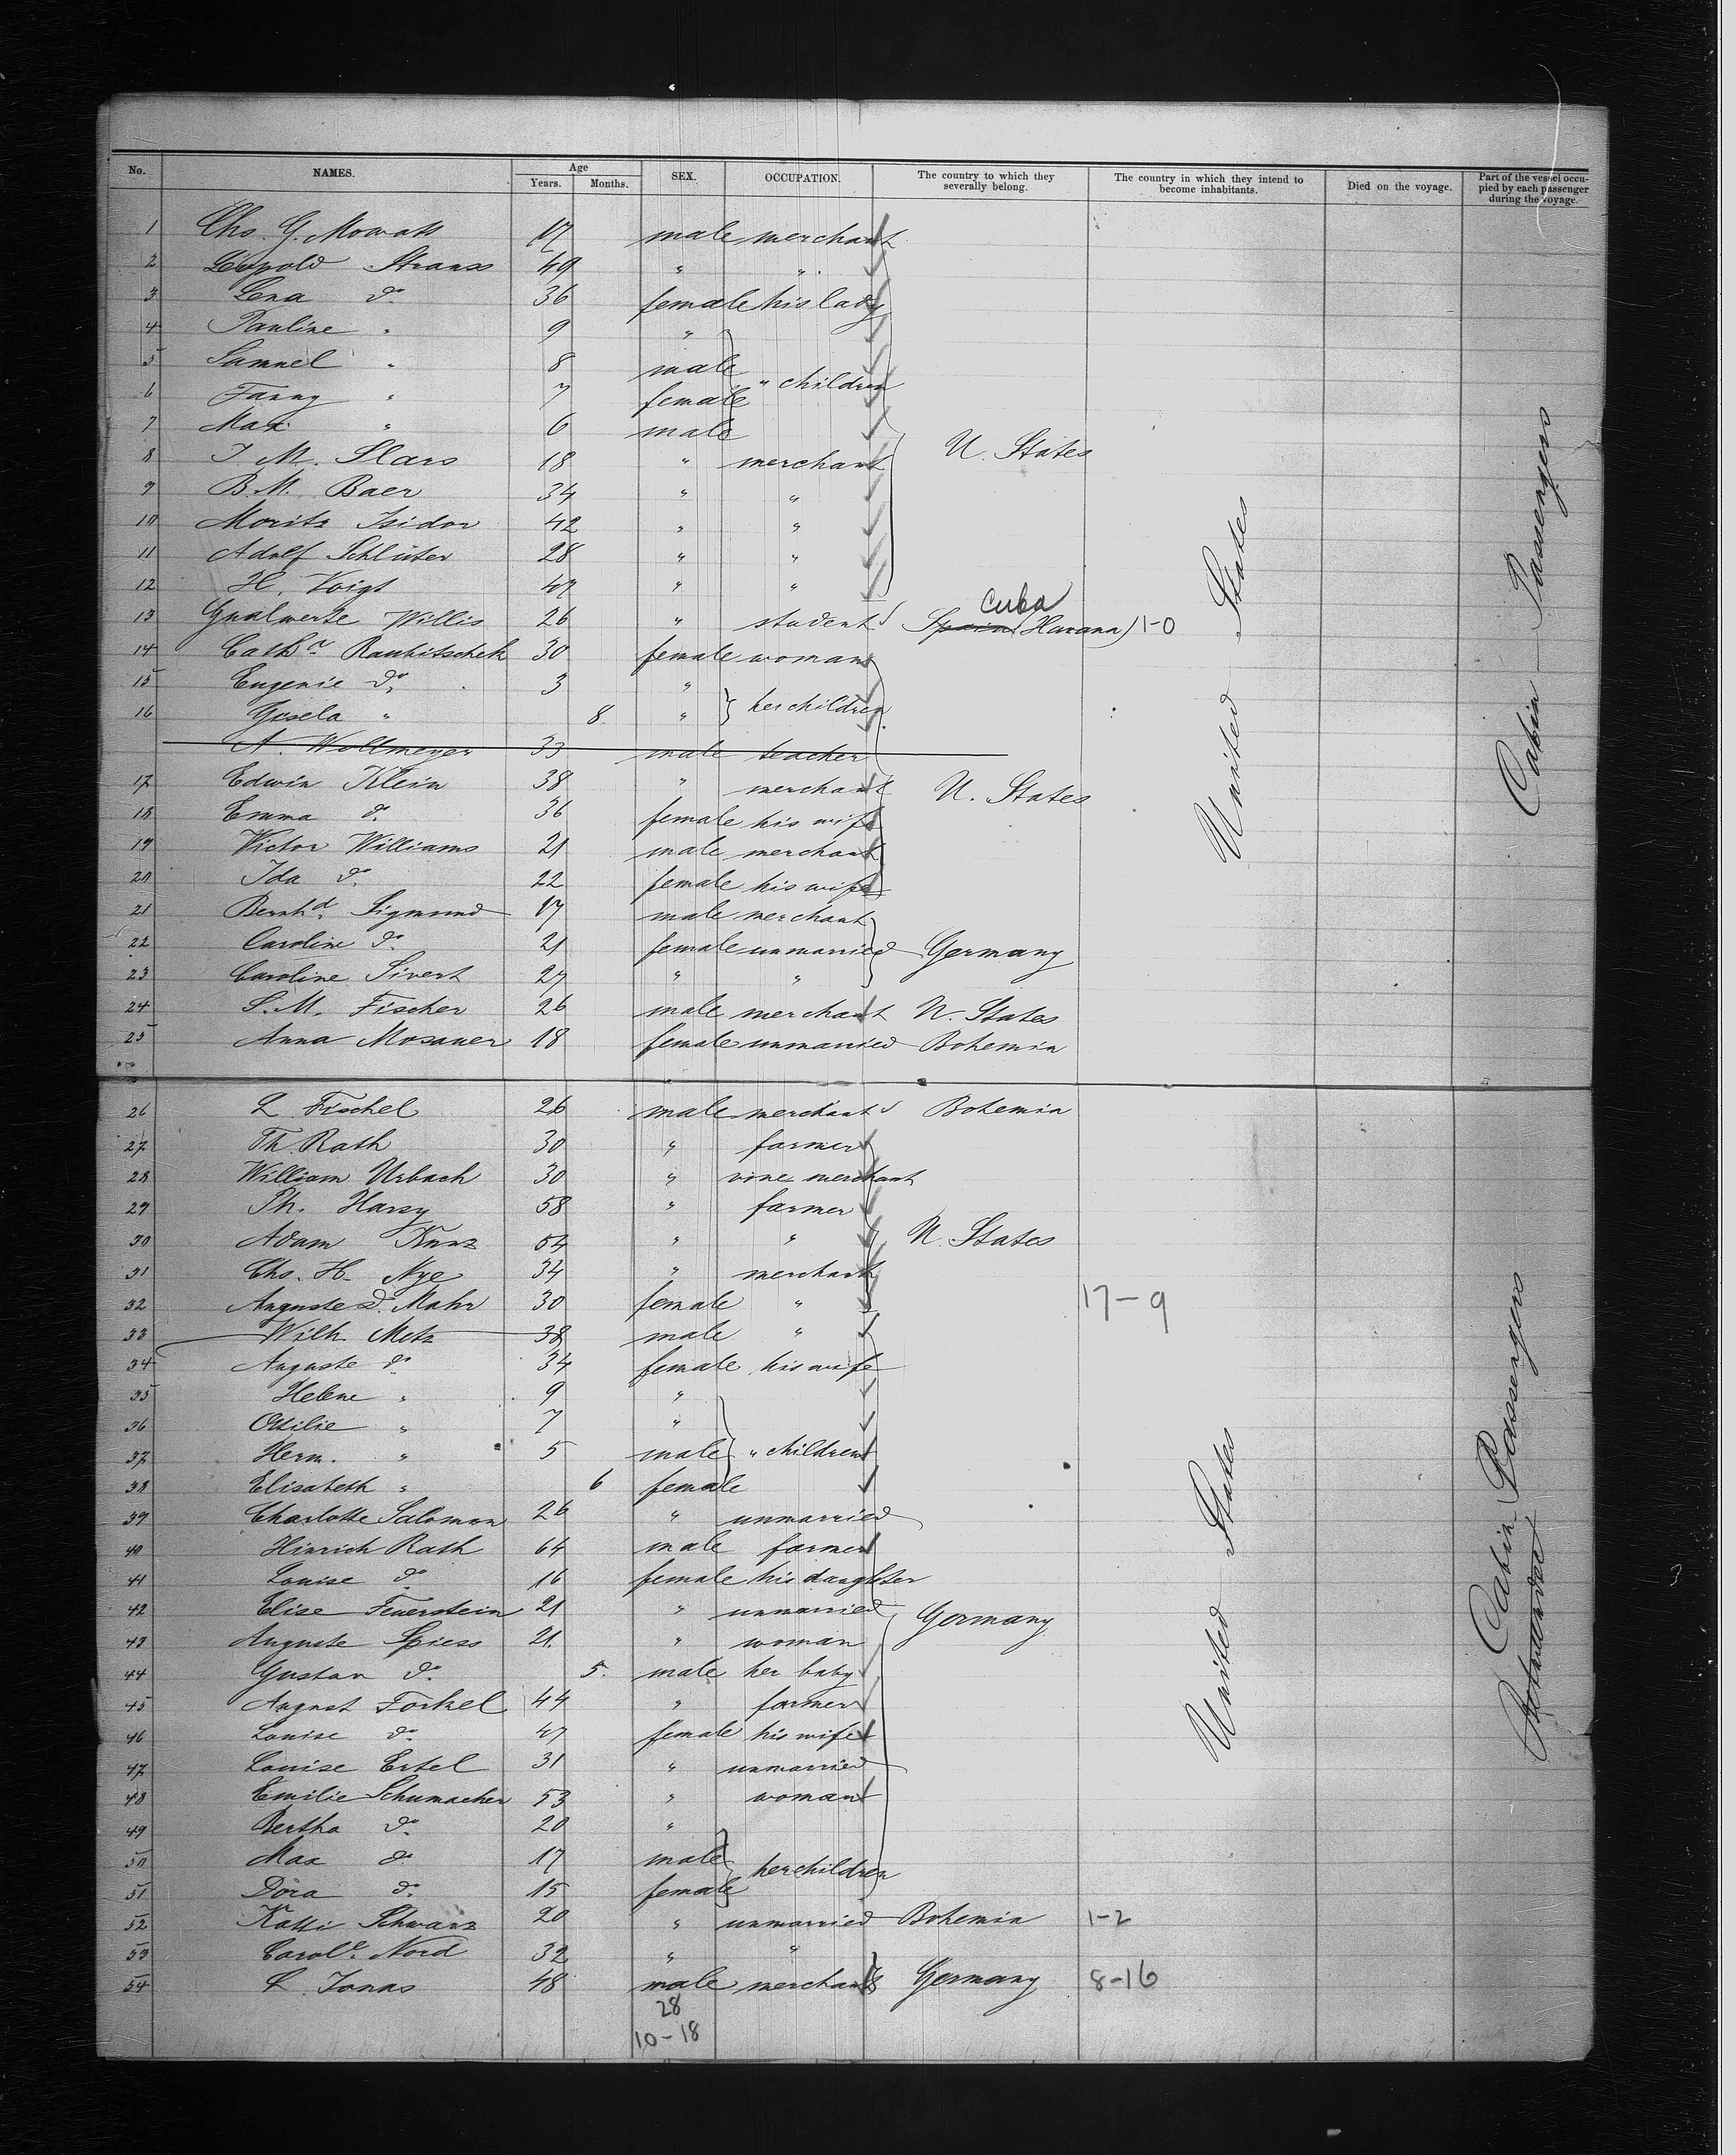 No. NAMES. Age Years. Months. SEX. OCCUPATION. The country to which they severally belong. The country in which they intend to become inhabitants. Died on the voyage. Part of the vessel occupied by each passenger during the voyage.
1 Chs. G. Mowatt 17 male merchant
2 Leopold Strauss 49 " "
3 Lena do 36 female his lady
4 Pauline " 9 "
5 Samuel " 8 male
6 Fanny " 7 female " children
7 Max " 6 male
8 I. M. Slars 18 " merchant U. States
9 B. M. Baer 34 " "
10 Moritz Isidor 42 " "
11 Adolf Schlüter 28 " "
12 H. Voigt 47 " "
13 Gualverte Willis 26 " student Spain Cuba (Havana) 1-0
14 Cathr. Raubitschek 30 female woman
15 Eugenie do 3 "
16 Gisela " 8. " her children
A. Wollmeyer 33 male teacher
17 Edwin Klein 38 " merchant U. States
18 Emma do 36 female his wife
19 Victor Williams 21 male merchant
20 Ida do 22 female his wife
21 Bernhd. Sigmund 17 male merchant
22 Caroline do 21 female unmarried Germany
23 Caroline Sivert 27 " "
24 S. M. Fischer 26 male merchant U. States
25 Anna Mosauer 18 female unmarried Bohemia
United States
Cabin Passengers
26 L Fischel 26 male merchant Bohemia
27 Th. Rath 30 " farmer
28 William Urbach 30 " vine merchant
29 Ph. Harsy 58 " farmer
30 Adam Kunz 54 " " U. States
31 Chs. H. Nye 34 " merchant
32 Auguste d. Mahr 30 female " 17-9
33 Wilh. Metz 38 male "
34 Auguste do 34 female his wife
35 Helene " 9 "
36 Ottilie " 7 "
37 Herm. " 5 male " children
38 Elisabeth " 6 female
39 Charlotte Salomon 26 " unmarried
40 Hinrich Rath 64 male farmer
41 Louise do 16 female his daughter
42 Elise Feuerstein 21 " unmarried Germany
43 Auguste Spiess 21. " woman
44 Gustav do 5. male her baby
45 August Forkel 44 " farmer
46 Louise do 47 female his wife
47 Louise Ertel 31 " unmarried
48 Emilie Schumacher 53 " woman
49 Bertha do 20 "
50 Max do 17 male her children
51 Dora do 15 female
52 Katti Schwarz 20 " unmarried Bohemia 1-2
53 Carole. Nord 32 " "
54 L. Jonas 48 male merchant Germany 8-16
28
10-18
United States
Cabin Passengers
3